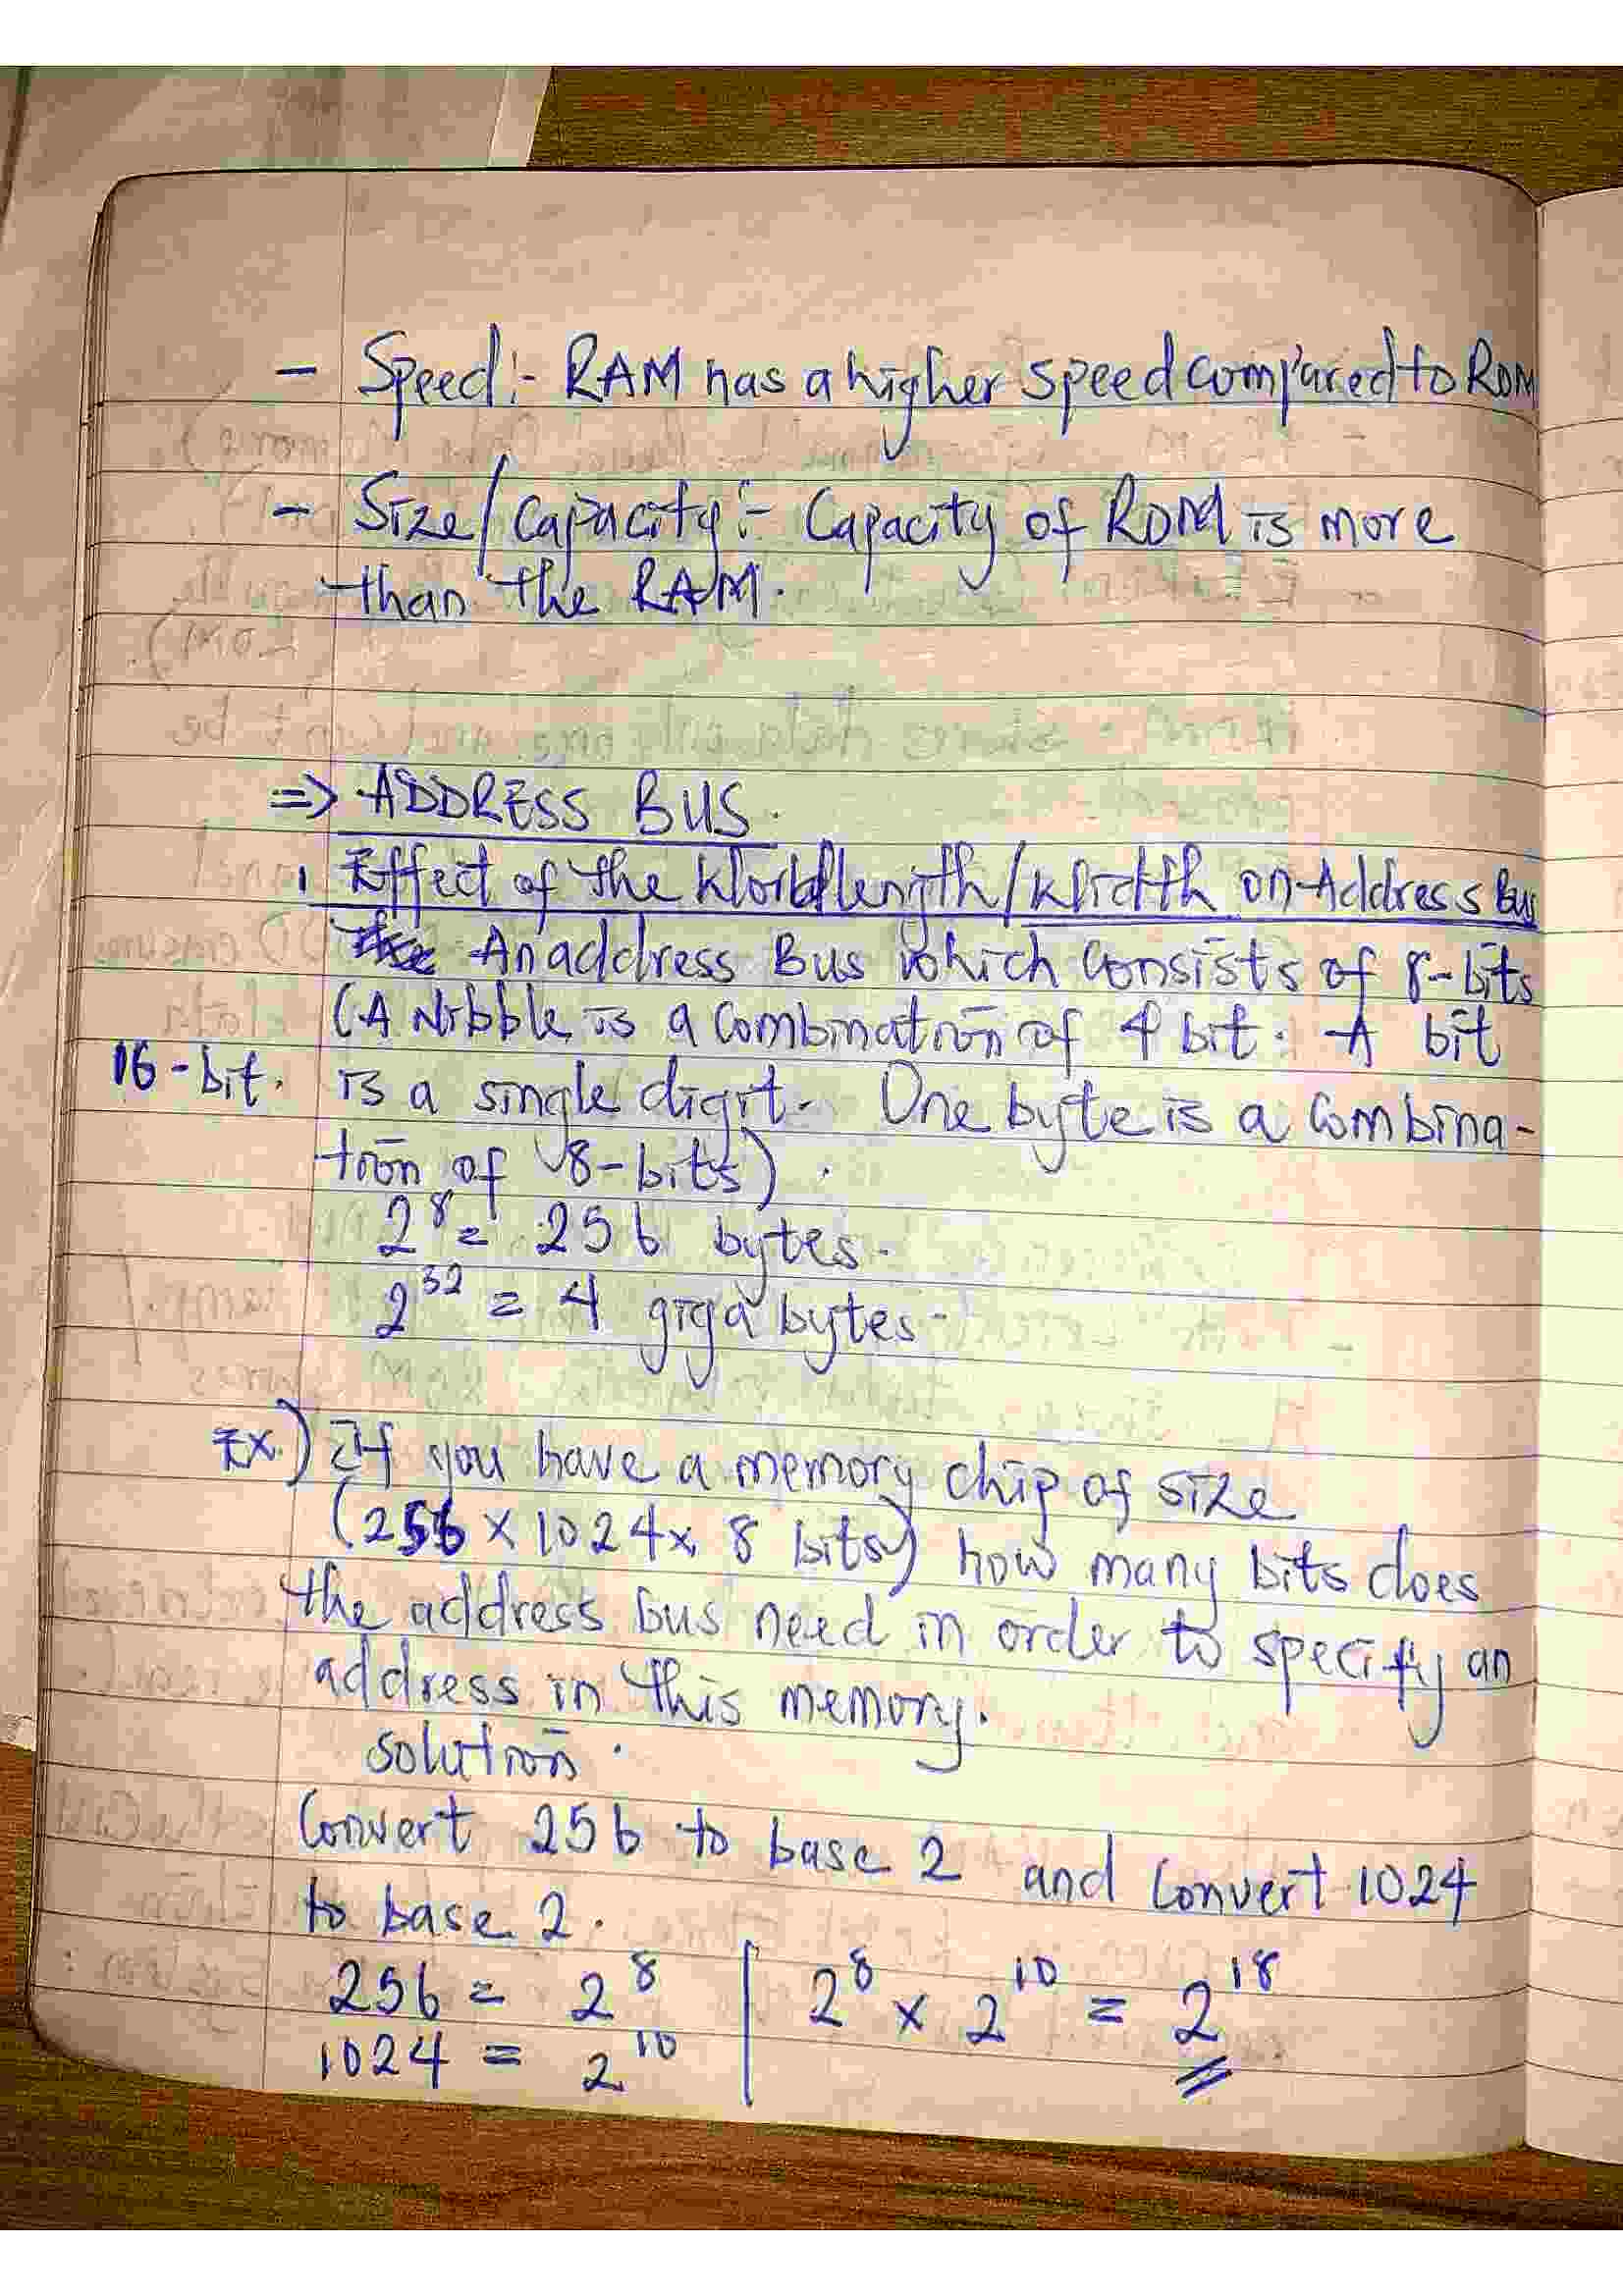 - Speed:- RAM has a higher speed compared to ROM
- Size/Capacity:- Capacity of ROM is more
than the RAM.
=> ADDRESS BUS.
1 Effect of the Word length/Width on Address Bus
An address Bus which consists of 8-bits
(A Nibble is a combination of 4 bit. A bit
16-bit. is a single digit. One byte is a combina-
tion of 8-bits).
2^8 = 256 bytes.
2^32 = 4 giga bytes.
Ex) If you have a memory chip of size
(256 x 1024 x 8 bits) how many bits does
the address bus need in order to specify an
address in this memory.
solution.
Convert 256 to base 2 and convert 1024
to base 2.
256 = 2^8 | 2^8 x 2^10 = 2^18
1024 = 2^10